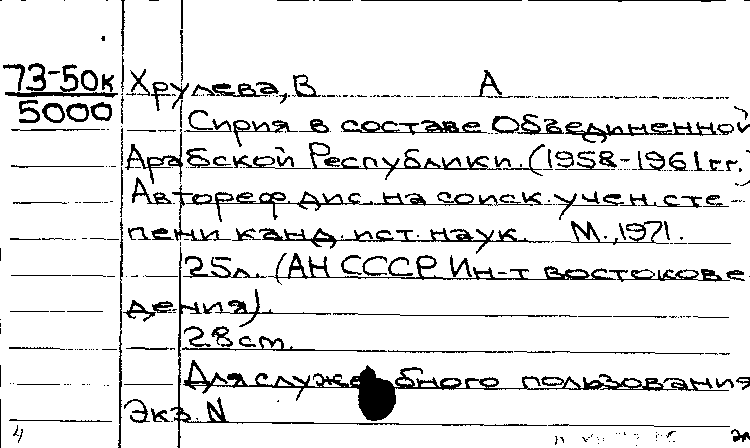 73-50к Хрулева, В А
5000
Сирия в составе Объединенной
Арабской Республики. (1958-1961гг.)
Автореф. дис. на соиск. учен. сте-
пени канд. ист. наук. М., 1971.
25л. (АН СССР Ин-т востокове
дения).
28 ст.
Для служебного пользования
Экз. N
4